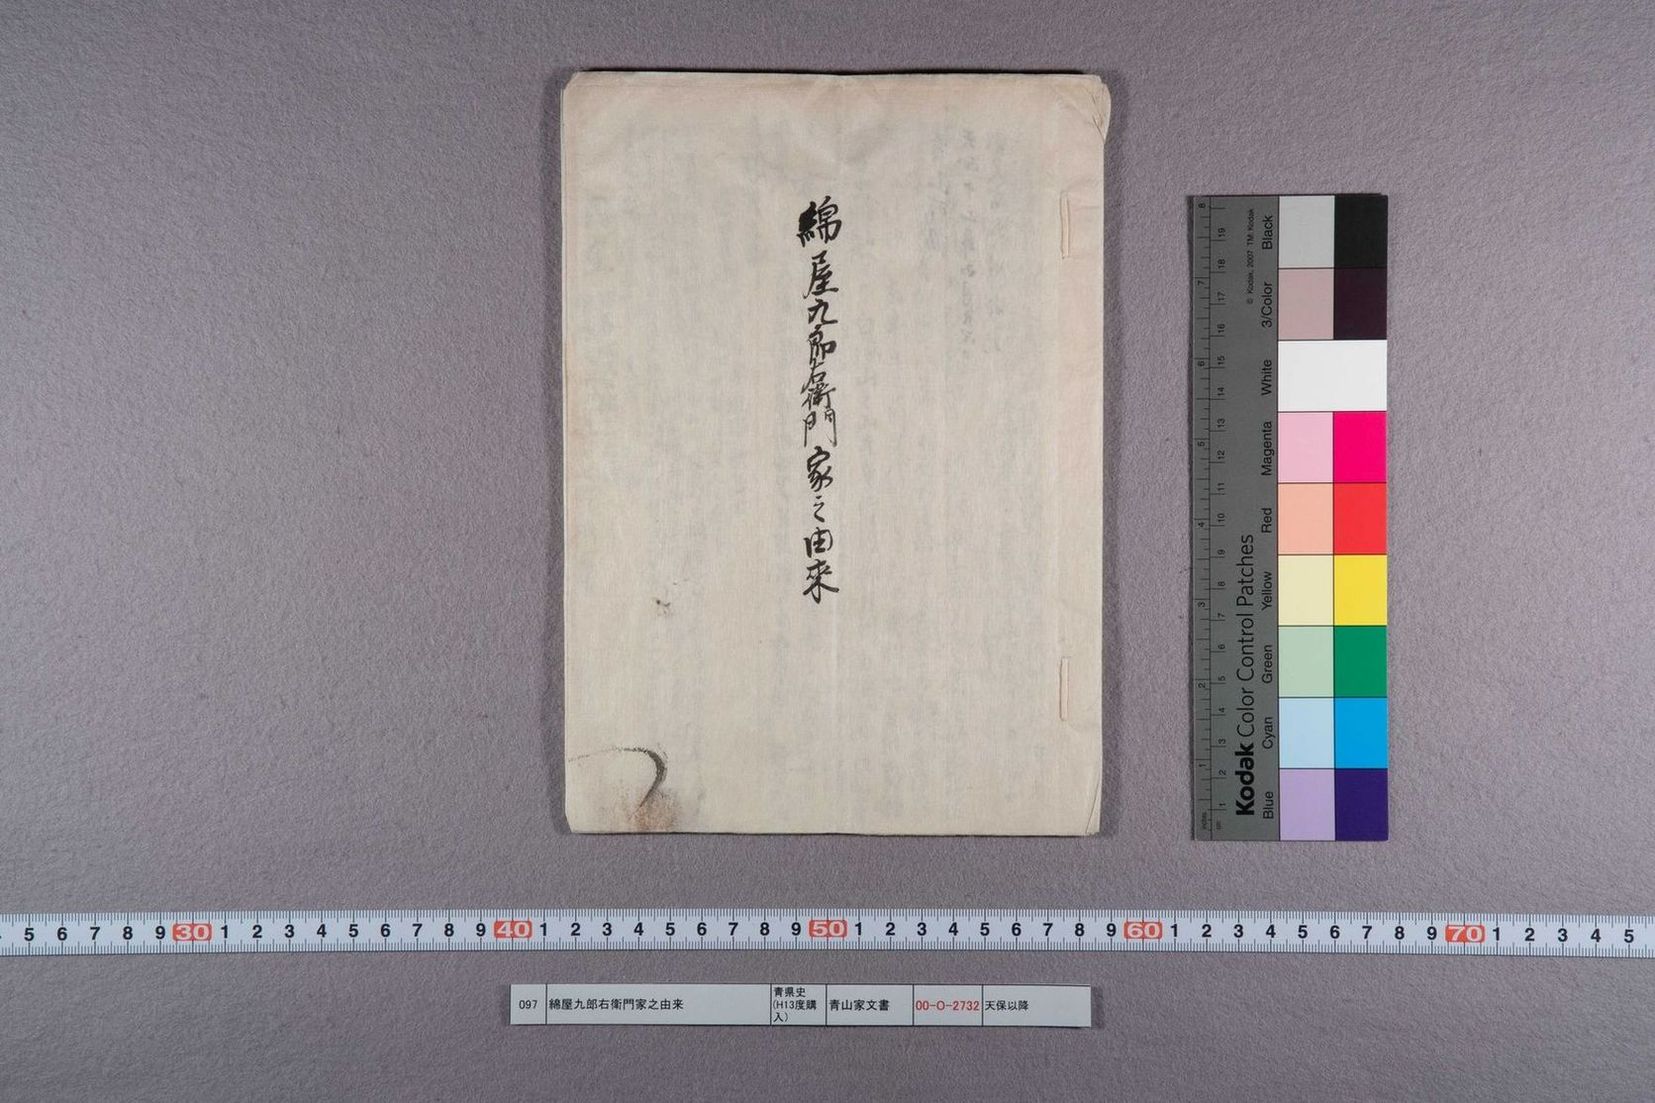 綿屋九郎右衛門家之由来
© Kodak, 2007 TM: Kodak
Kodak Color Control Patches
Blue Cyan Green Yellow Red Magenta White 3/Color Black
1 2 3 4 5 6 7 8
1 2 3 4 5 6 7 8 9 10 11 12 13 14 15 16 17 18 19
5 6 7 8 9 30 1 2 3 4 5 6 7 8 9 40 1 2 3 4 5 6 7 8 9 50 1 2 3 4 5 6 7 8 9 60 1 2 3 4 5 6 7 8 9 70 1 2 3 4 5
097 綿屋九郎右衛門家之由来 青県史(H13度購入) 青山家文書 00-O-2732 天保以降